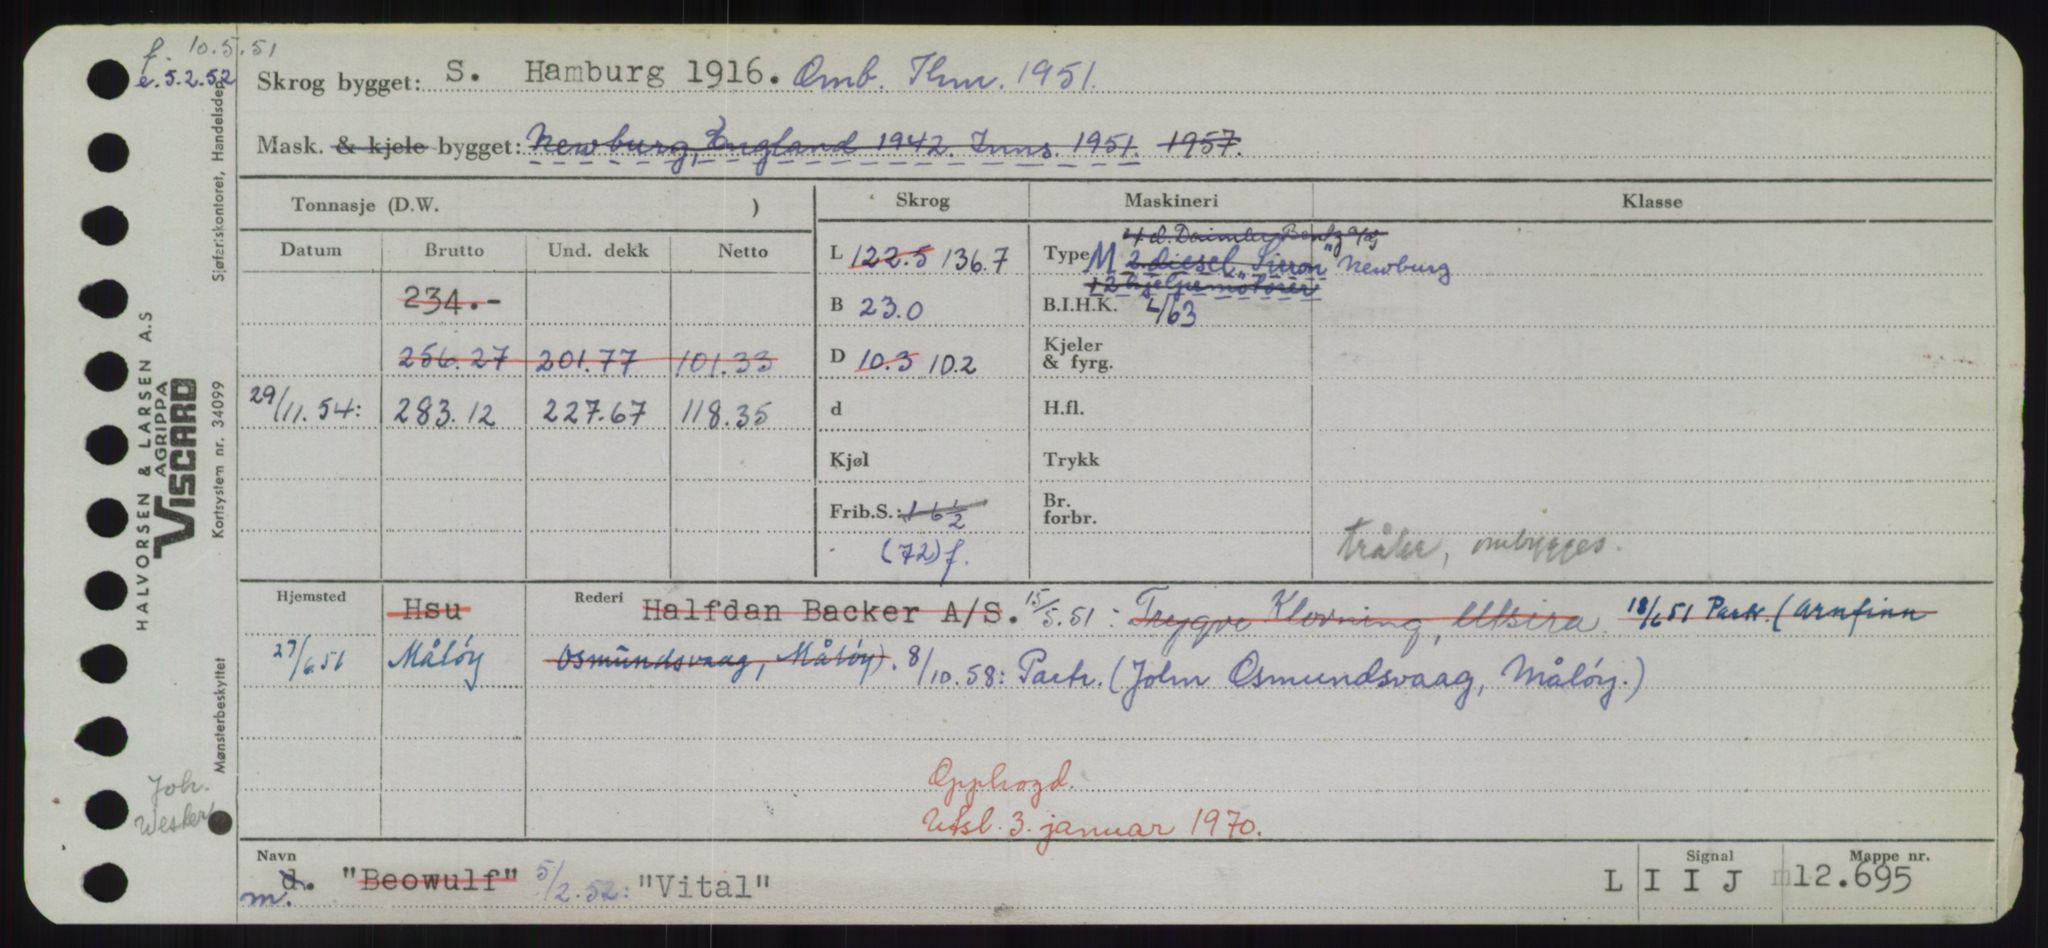 f. 10.5.51
e. 5.2.52
Skrog bygget: S. Hamburg 1916. Omb. Thm. 1951.
Mask. & kjele bygget: Newburg, England 1942. Inns. 1951. 1957.
Tonnasje (D.W. )
Skrog Maskineri Klasse
Datum Brutto Und. dekk Netto
L 122.5 136.7
Type M 2 diesel "Sirron" Newburg
+ 2 hjelpemotorer
234.-
B 23.0
B.I.H.K. 4/63
256.27 201.77 101.33
D 10.3 10.2
Kjeler & fyrg.
29/11.54: 283.12 227.67 118.35
d
H.fl.
Kjøl
Trykk
Frib.S.: 1 6 1/2
Br. forbr.
(72) f.
tråler, ombygges.
Hjemsted Hsu Rederi Halfdan Backer A/S. 15/5.51: Trygve Klovning, Utsira. 18/6 51 Partr. (Arnfinn
27/6.51 Måløy Osmundsvaag, Måløy). 8/10.58: Partr. (John Osmundsvaag, Måløy.)
Opphogd.
Utsl. 3. januar 1970.
Navn
d. m. "Beowulf" 5/2.52: "Vital"
Signal L I I J
Mappe nr. m12.695
HALVORSEN & LARSEN A.S
AGRIPPA
VISCARD
Sjøfartskontoret, Handelsdep.
Kortsystem nr. 34099
Mønsterbeskyttet
Joh.